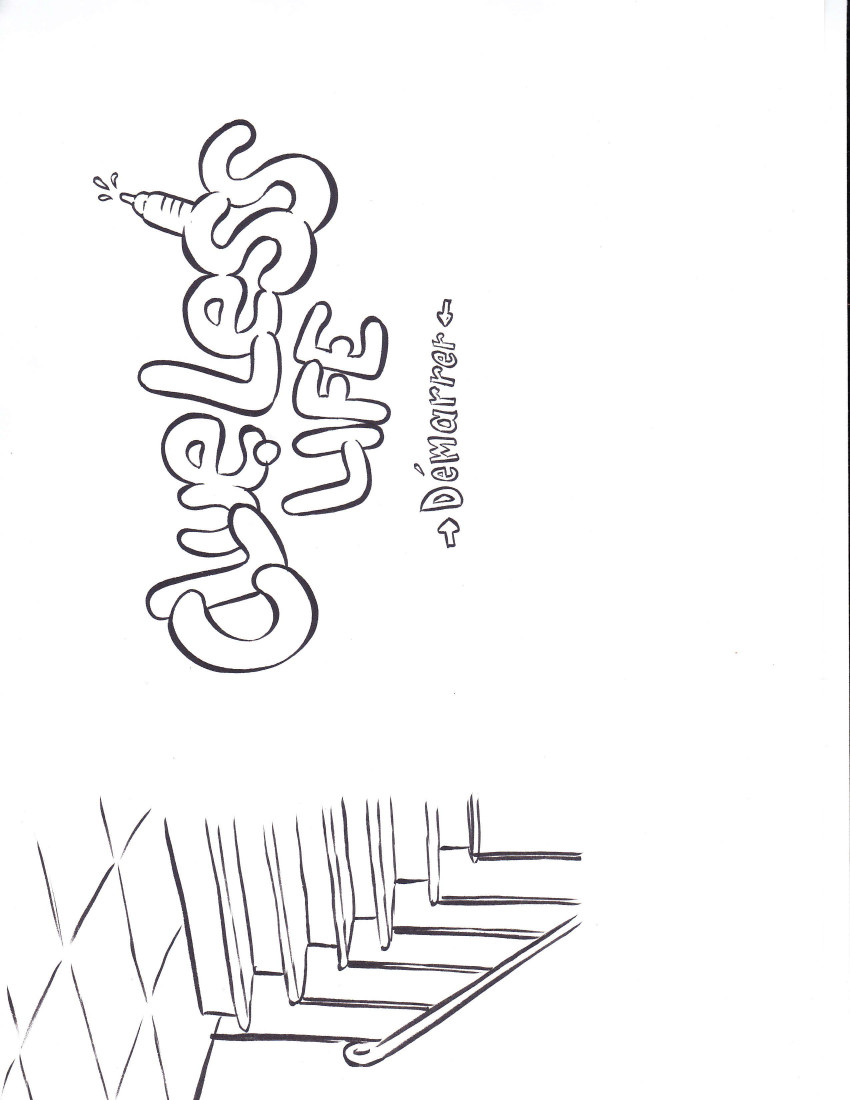 ClueLess
LIFE
→ Démarrer ←